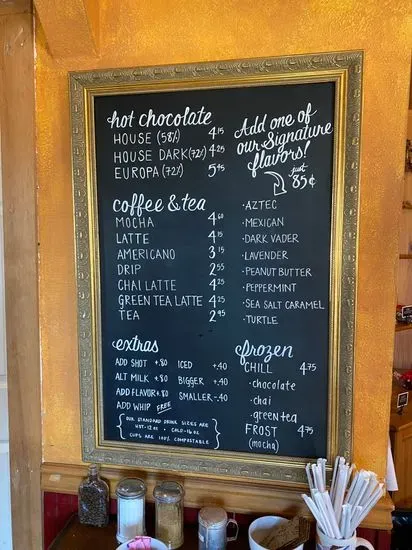 hot chocolate
HOUSE (58%) 4.15
HOUSE DARK (72%) 4.25
EUROPA (72%) 5.45
Add one of
our Signature
flavors!
just
85¢
·AZTEC
·MEXICAN
·DARK VADER
·LAVENDER
·PEANUT BUTTER
·PEPPERMINT
·SEA SALT CARAMEL
·TURTLE
coffee & tea
MOCHA 4.60
LATTE 4.15
AMERICANO 3.15
DRIP 2.55
CHAI LATTE 4.25
GREEN TEA LATTE 4.25
TEA 2.45
extras
ADD SHOT +.80 ICED +.40
ALT MILK +.80 BIGGER +.40
ADD FLAVOR +.80 SMALLER -.40
ADD WHIP FREE
OUR STANDARD DRINK SIZES ARE
HOT-12 oz · COLD-16 oz
CUPS ARE 100% COMPOSTABLE
frozen
CHILL 4.75
·chocolate
·chai
·green tea
FROST 4.75
(mocha)